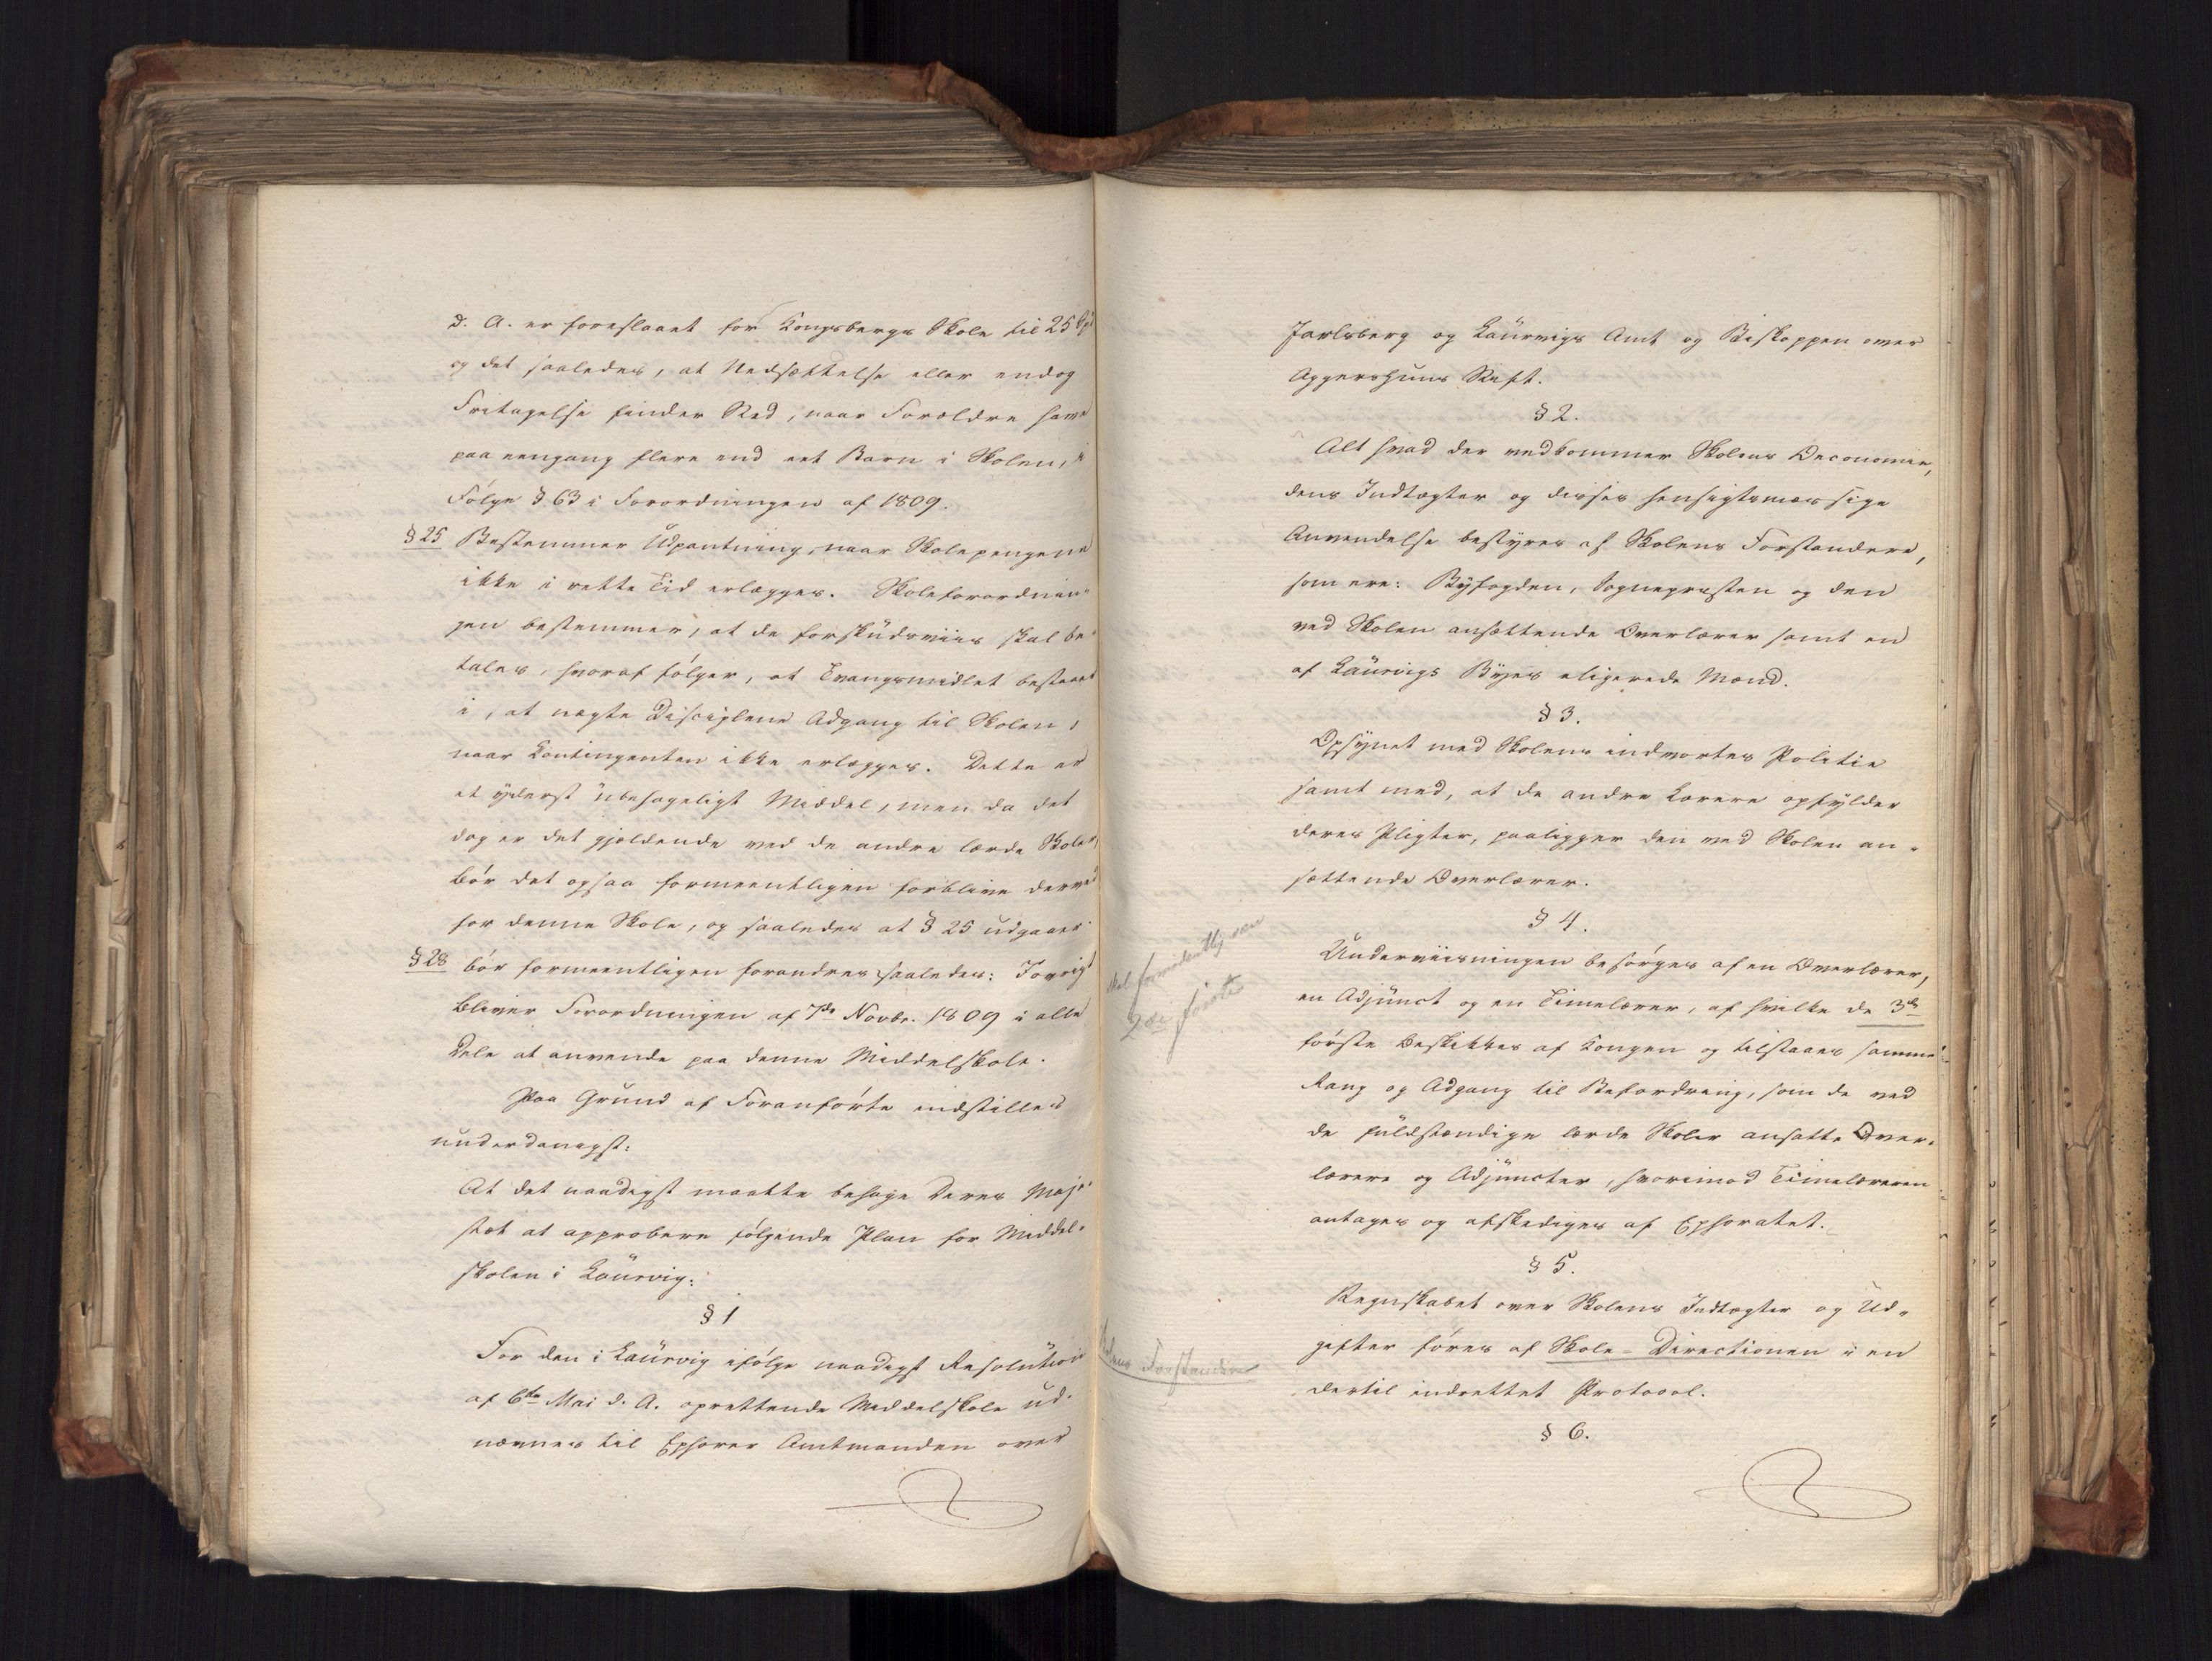 d. A. er foreslaaet for Kongsbergs Skole til 25 Spd
og det saaledes, at Nedsættelse eller endog
Fritagelse finder Sted, naar Forældre have
paa eengang flere end eet Barn i Skolen, i
Følge § 63 i Forordningen af 1809.
§ 25 Bestemmer Udpantning, naar Skolepengene
ikke i rette Tid erlægges. Skoleforordnin-
gen bestemmer, at de forskudsviis skal be-
tales, hvoraf følger, at Tvangsmidlet bestaaer
i, at nægte Disciplene Adgang til Skolen,
naar Contingenten ikke erlægges. Dette er
et yderst ubehageligt Middel, men da det
dog er det gjældende ved de andre lærde Skoler,
bør det ogsaa formeentligen forblive derved
for denne Skole, og saaledes at § 25 udgaaer.
§ 28 bør formeentligen forandres saaledes: Iøvrigt
bliver Forordningen af 7de Novbr. 1809 i alle
Dele at anvende paa denne Middelskole.
Paa Grund af Foranførte indstilles
underdanigst:
At det naadigst maatte behage Deres Maje-
stæt at approbere følgende Plan for Middel-
skolen i Laurvig:
§ 1
For den i Laurvig ifølge naadigst Resolution
af 6te Mai d. A. oprettende Middelskole ud-
nævnes til Ephorer Amtmanden over
Jarlsberg og Laurvigs Amt og Biskoppen over
Aggershuus Stift.
§ 2.
Alt hvad der vedkommer Skolens Oeconomie,
dens Indtægter og disses hensigtsmæssige
Anvendelse bestyres af Skolens Forstandere,
som ere: Byfogden, Sognepræsten og den
ved Skolen ansættende Overlærer samt en
af Laurvigs Byes eligerede Mænd.
§ 3.
Opsynet med Skolens indvortes Politie
samt med, at de andre Lærere opfylder
deres Pligter, paaligger den ved Skolen an-
sættende Overlærer.
§ 4.
Underviisningen besørges af en Overlærer,
en Adjunct og en Timelærer, af hvilke de 3de
første beskikkes af Kongen og tilstaaes samme
Rang og Adgang til Befordring, som de ved
de fuldstændige lærde Skoler ansatte Over-
lærere og Adjuncter, hvorimod Timelæreren
antages og afskediges af Ephoratet.
skal formodentlig være
2de første
§ 5.
Regnskabet over Skolens Indtægter og Ud-
gifter føres af Skole-Directionen i en
dertil indrettet Protocol.
Skolens Forstandere
§ 6.